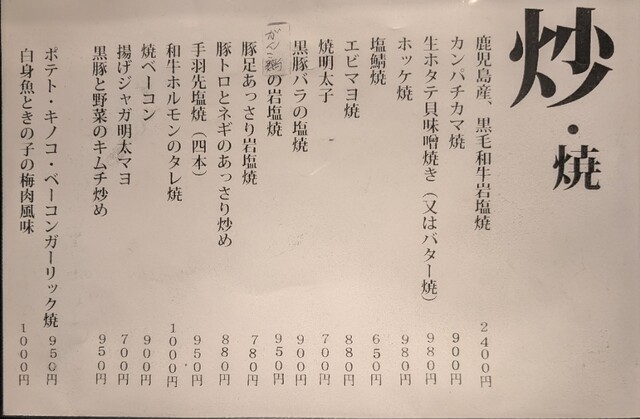 炒・焼
鹿児島産、黒毛和牛岩塩焼 2400円
カンパチカマ焼 900円
生ホタテ貝味噌焼き（又はバター焼） 980円
ホッケ焼 980円
塩鯖焼 650円
エビマヨ焼 880円
焼明太子 700円
黒豚バラの塩焼 900円
がんこ鶏の岩塩焼 950円
豚足あっさり岩塩焼 780円
豚トロとネギのあっさり炒め 880円
手羽先塩焼（四本） 950円
和牛ホルモンのタレ焼 1000円
焼ベーコン 900円
揚げジャガ明太マヨ 700円
黒豚と野菜のキムチ炒め 950円
ポテト・キノコ・ベーコンガーリック焼 950円
白身魚ときの子の梅肉風味 1000円